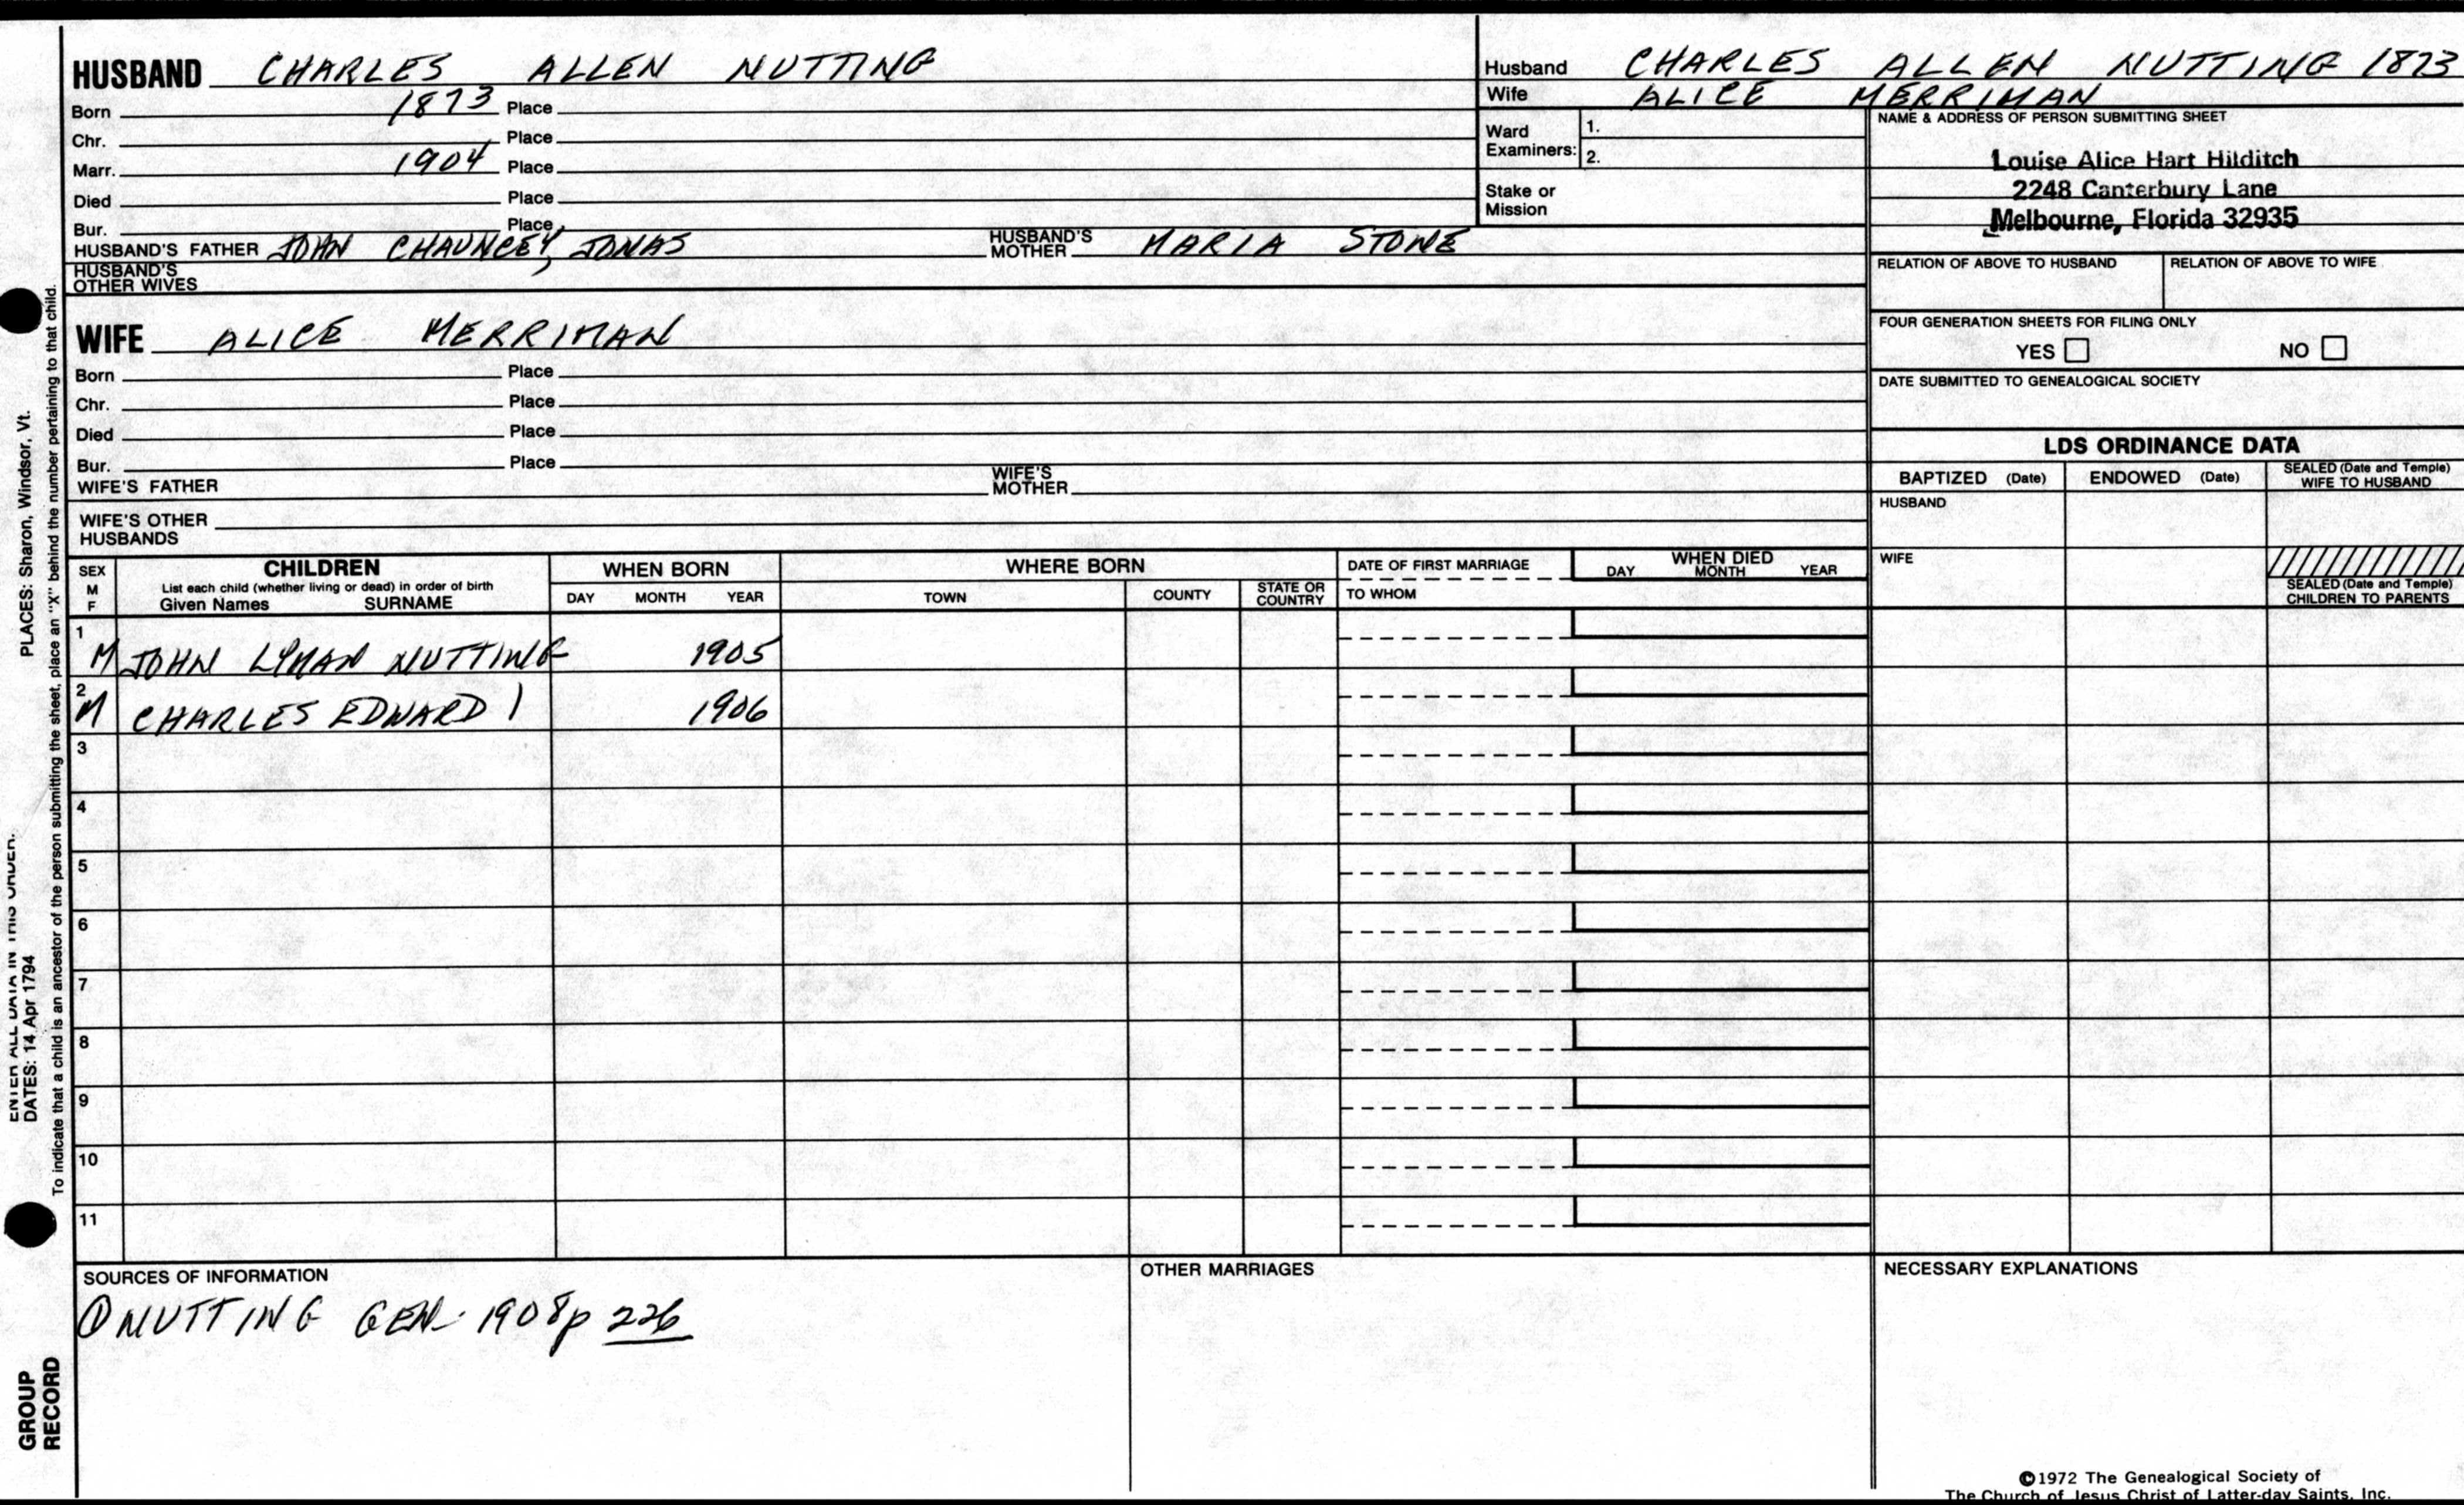 HUSBAND CHARLES ALLEN NUTTING
Born 1873 Place
Chr. Place
Marr. 1904 Place
Died Place
Bur. Place
HUSBAND'S FATHER JOHN CHAUNCEY, JONAS HUSBAND'S MOTHER MARIA STONE
HUSBAND'S OTHER WIVES
Husband CHARLES ALLEN NUTTING 1873
Wife ALICE MERRIMAN
Ward Examiners: 1.
2.
Stake or Mission
NAME & ADDRESS OF PERSON SUBMITTING SHEET
Louise Alice Hart Hilditch
2248 Canterbury Lane
Melbourne, Florida 32935
RELATION OF ABOVE TO HUSBAND RELATION OF ABOVE TO WIFE
FOUR GENERATION SHEETS FOR FILING ONLY
YES NO
DATE SUBMITTED TO GENEALOGICAL SOCIETY
WIFE ALICE MERRIMAN
Born Place
Chr. Place
Died Place
Bur. Place
WIFE'S FATHER WIFE'S MOTHER
WIFE'S OTHER HUSBANDS
LDS ORDINANCE DATA
BAPTIZED (Date) ENDOWED (Date) SEALED (Date and Temple) WIFE TO HUSBAND
HUSBAND
WIFE
SEALED (Date and Temple) CHILDREN TO PARENTS
SEX M F
CHILDREN
List each child (whether living or dead) in order of birth
Given Names SURNAME
WHEN BORN
DAY MONTH YEAR
WHERE BORN
TOWN COUNTY STATE OR COUNTRY
DATE OF FIRST MARRIAGE
TO WHOM
WHEN DIED
DAY MONTH YEAR
1 M JOHN LYMAN NUTTING 1905
2 M CHARLES EDWARD 1 1906
3
4
5
6
7
8
9
10
11
SOURCES OF INFORMATION
① NUTTING GEN. 1908 p 226
OTHER MARRIAGES
NECESSARY EXPLANATIONS
©1972 The Genealogical Society of
The Church of Jesus Christ of Latter-day Saints, Inc.
ENTER ALL DATA IN THIS ORDER.
DATES: 14 Apr 1794 PLACES: Sharon, Windsor, Vt.
To indicate that a child is an ancestor of the person submitting the sheet, place an "X" behind the number pertaining to that child.
GROUP
RECORD